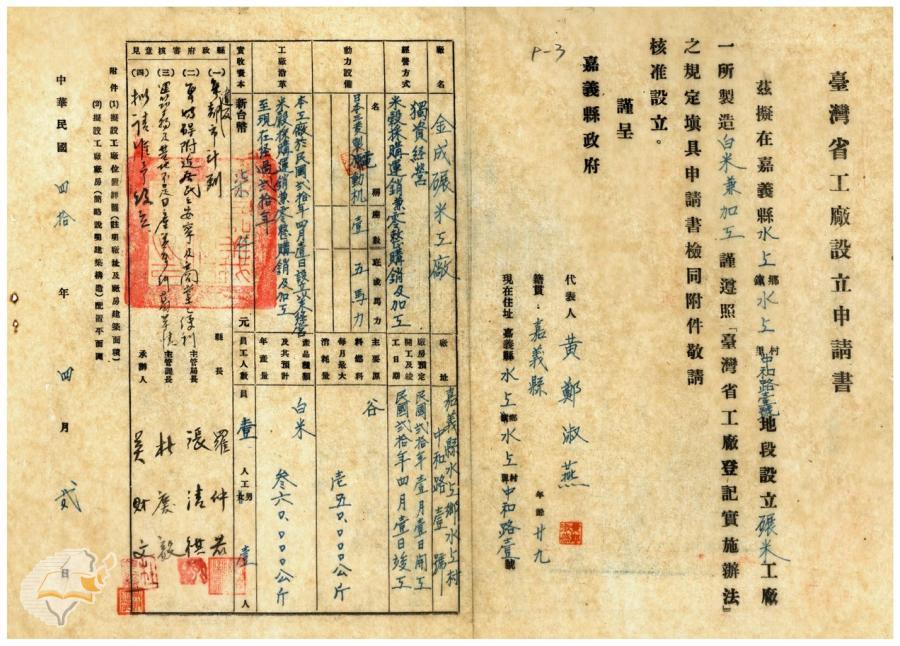 臺灣省工廠設立申請書
茲擬在嘉義縣水上鄉鎮水上村里中和路壹號地段設立碾米工廠
一所製造白米兼加工謹遵照「臺灣省工廠登記實施辦法」
之規定塡具申請書檢同附件敬請
核准設立。
謹呈
嘉義縣政府
P-3
代表人 黃鄭淑燕 年齡 廿九
籍貫:嘉義縣
現在住址 嘉義縣水上鄉鎮水上村里中和路壹號
廠名 金成碾米工廠
廠址 嘉義縣水上鄉水上村中和路壹號
經營方式 獨資經營
米穀採購運銷兼零整購銷及加工
廠房預定開工及竣工日期 民國貳拾年壹月壹日開工
民國貳拾年四月壹日竣工
動力設備 名稱 座數 匹或馬力
日本三菱電動机 壹 五馬力
主要原料總料 谷
每月最大消耗 壹五0,000公斤
工廠沿革 本工廠於民國貳拾年四月壹日設立並經營
米穀採購運銷兼零整購銷及加工
至現在経過貳拾年
產品種類及其預計年產量 白米 叁六0,000公斤
實收資本 新台幣 柒仟 元
員工人數 員 壹 人 工 男 壹 人
縣政府審核意見
(一)無都市計劃
(二)
(三)
(四)拟請准予設立
縣長 羅仲若
主管局長 張清祺
主管課長 杜慶毅
承辦人 吳財文
附件 (1)擬設工廠位置詳圖(註明廠址及廠房建築面積)
(2)擬設工廠廠房(簡略說明建築構造)配置平面圖
中華民國 四拾 年 四 月 貳 日